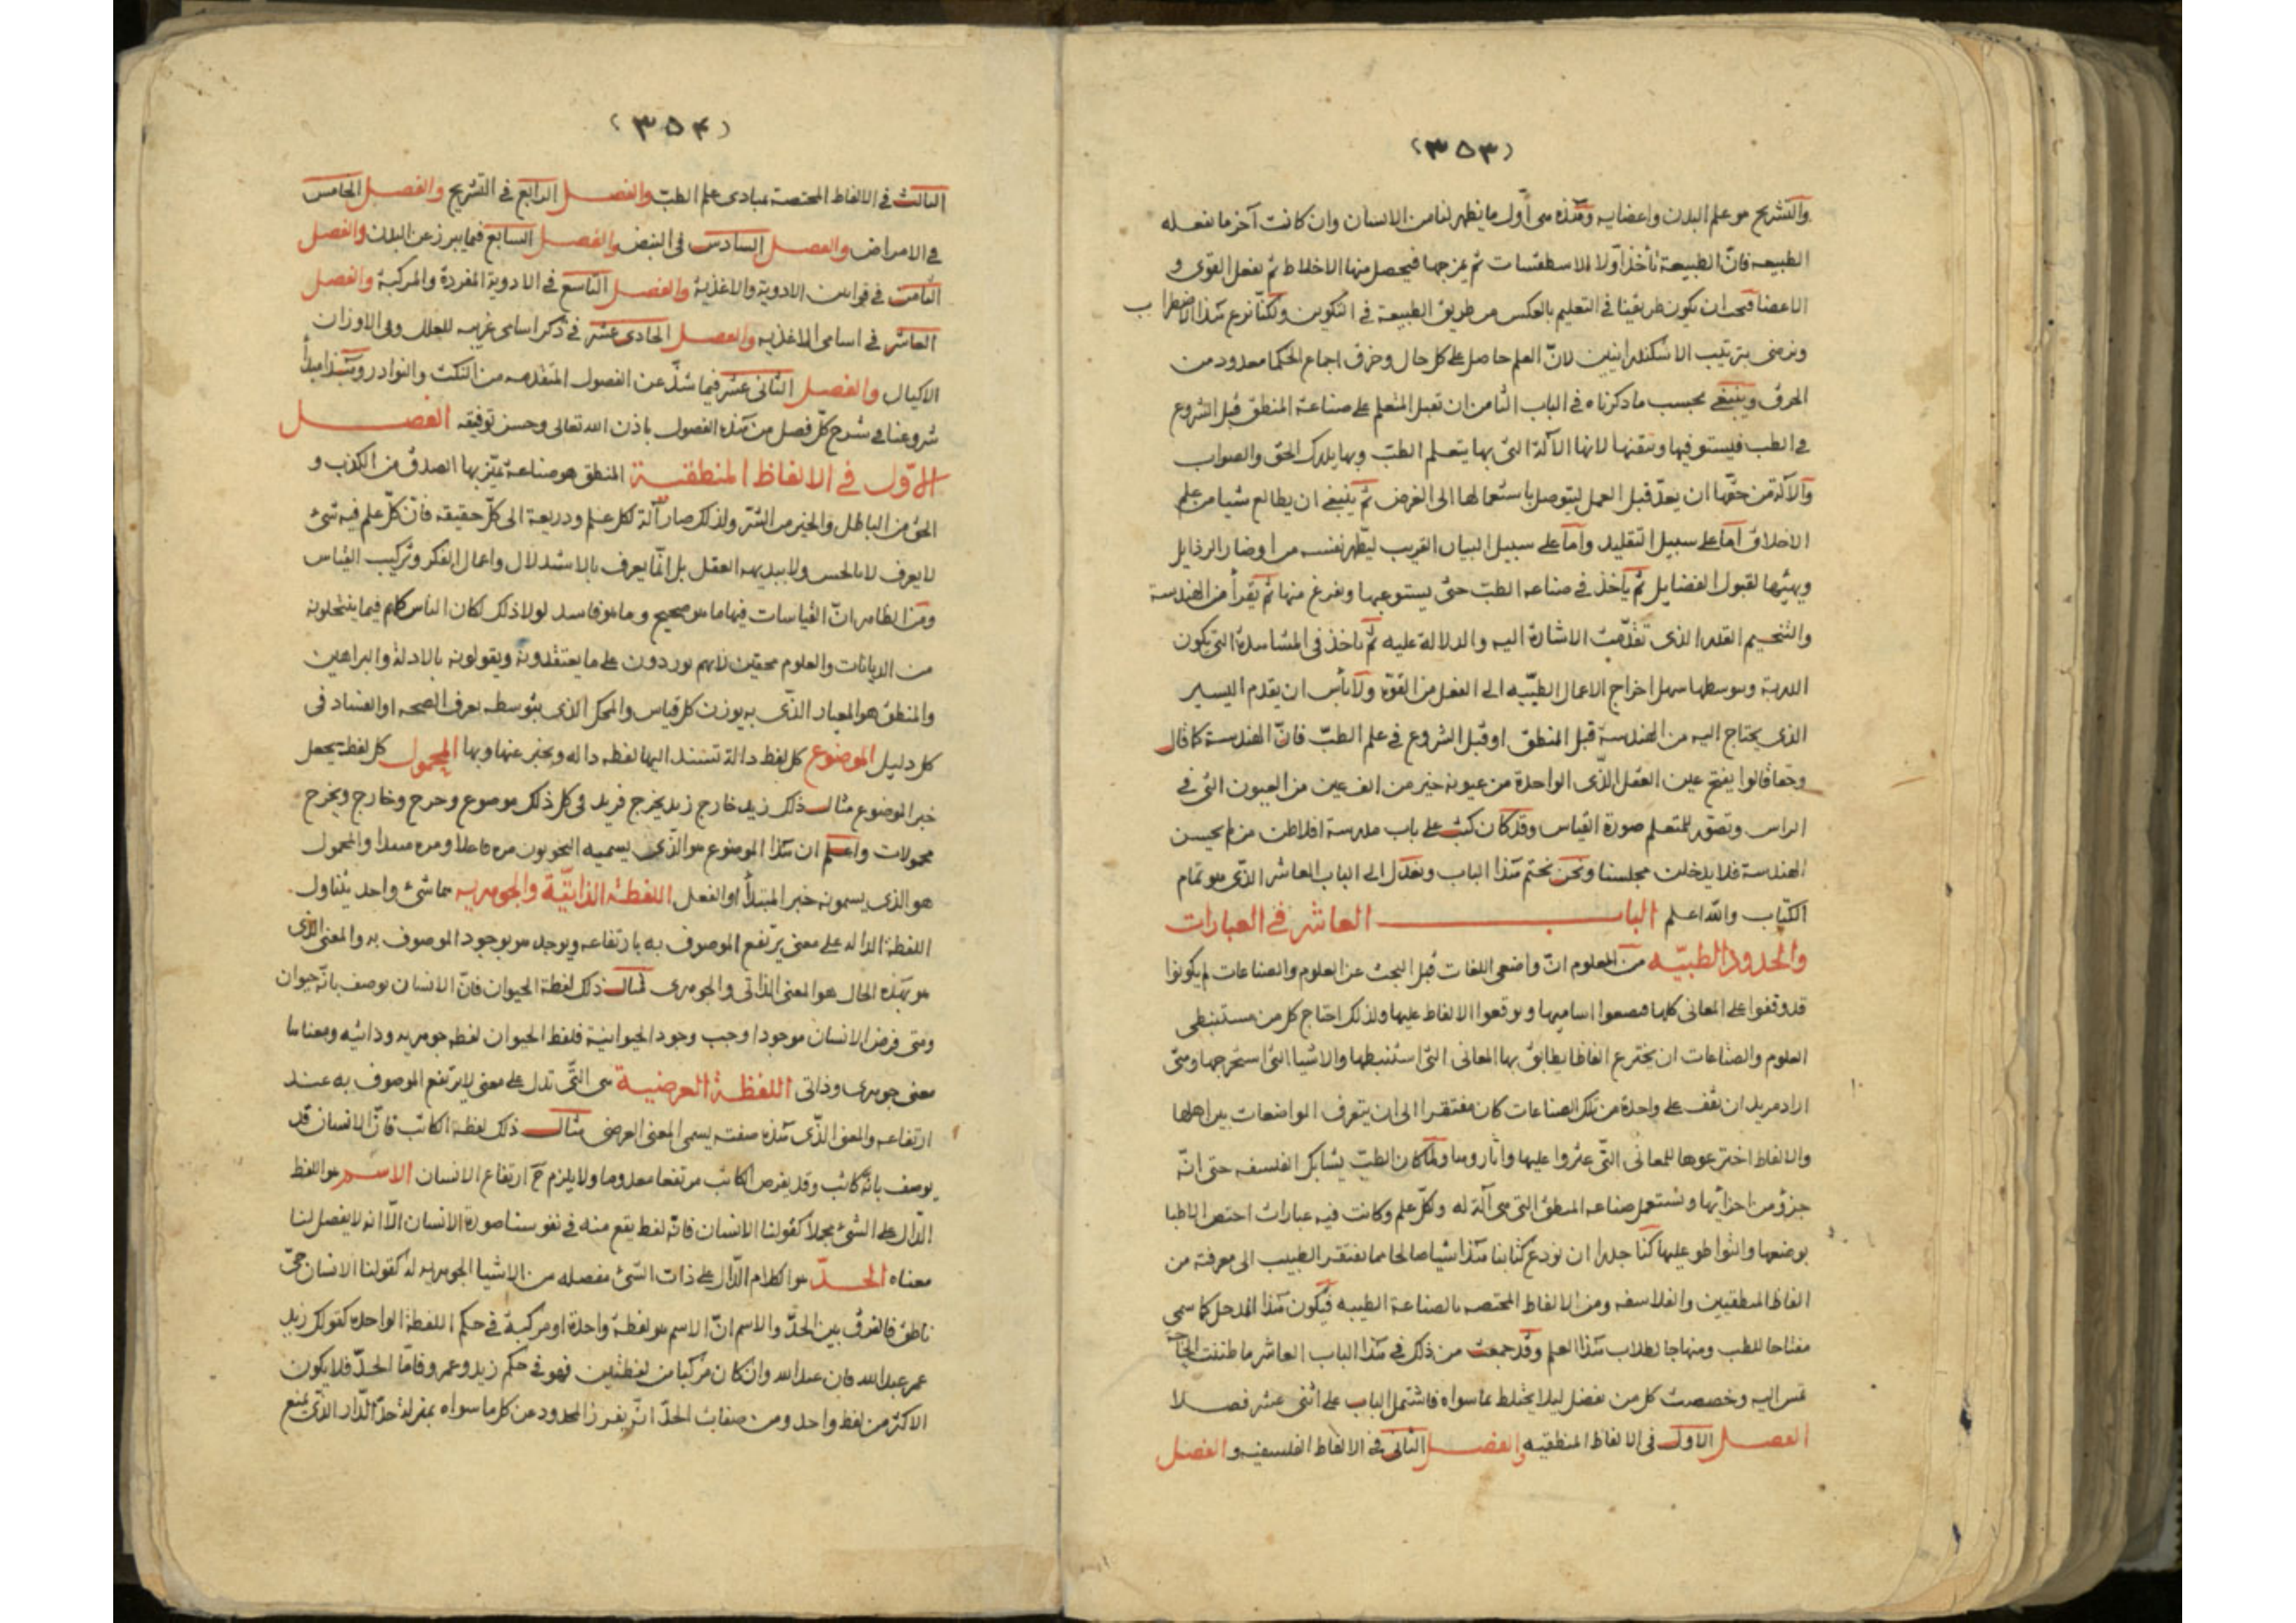 (٣٥٣)
والتشريح هو علم البدن واعضايه وهذه هى اول ما يظهر لنا من الانسان وان كانت آخر ما تفعله
الطبيعه فانّ الطبيعة تأخذ اوّلا الاسطقسات ثم تمزجها فيحصل منها الاخلاط ثم تفعل القوى و
الاعضا فيجب ان يكون طريقنا فى التعليم بالعكس من طريق الطبيعة فى التكوين ولكنّا نوع هذا الاضطراب
ونرضى بترتيب الاسكندرانيين لانّ العلم حاصل على كل حال وخرق اجماع الحكما معدود من
الخرق وينبغى بحسب ما ذكرناه فى الباب الثامن ان تقبل المتعلم على صناعة المنطق قبل الشروع
فى الطب فيستوفيها ويتقنها لانها الآلة التى بها يتعلم الطبّ وبها يدرك الحق والصواب
والآلة من حقّها ان يعدّ قبل العمل ليتوصل باستعمالها الى الغرض ثم ينبغى ان يطالع شيا من علم
الاخلاق امّا على سبيل التقليد وامّا على سبيل البيان القريب ليطهر نفسه من اوضار الرذايل
ويهيّئها لقبول الفضايل ثم يأخذ فى صناعه الطبّ حتى يستوعبها ويفرغ منها ثم يقرأ من الهندسة
والتنجيم القدر الذى تقدّمت الاشارة اليه والدلالة عليه ثم تأخذ فى المشاهدة التى يكون
الدربة وبتوسطها سهل اخراج الاعمال الطبّيه الى الفعل من القوّة ولا بأس ان يقدم اليسير
الذى يحتاج اليه من الهندسة قبل المنطق او قبل الشروع فى علم الطبّ فانّ الهندسة كما قال
وحقا قالوا يفتح عين العقل الذّى الواحدة من عيونه خير من الف عين من العيون التى فى
الراس وتصوّر للمتعلم صورة القياس وقد كان كتب على باب مدرسة افلاطن من لم يحسن
الهندسة فلا يدخلن مجلسنا ونحن نختم هذا الباب ونعدل الى الباب العاشر الذّى هو تمام
الكتاب والله اعلم البـــاب العاشر فى العبارات
والحدود الطبيّه من المعلوم انّ واضعى اللغات قبل البحث عن العلوم والصناعات لم يكونوا
قد وقفوا على المعانى كلها فيضعوا اساميها ويوقعوا الالفاظ عليها ولذلك احتاج كل من مستنبطى
العلوم والصناعات ان يخترع الفاظا يطابق بها المعانى التى استنبطها والاشيا التى استخرجها ومتى
اراد مريد ان يقف على واحدة من تلك الصناعات كان مفتقرا الى ان يتعرف المواضعات بين اهلها
والالفاظ اخترعوها للمعانى التّى عثروا عليها واثاروها ولمّا كان الطبّ يشابك الفلسفه حتى انّه
جزؤ من اجزائها ويستعمل صناعه المنطق التى هى آلة له ولكلّ علم وكانت فيه عبارات اختص الاطبا
بوضعها والتواطو عليها كنّا جدرا ان نودع كتابنا هذا اشيا صالحا مما يفتقر الطبيب الى معرفة من
الفاظ المنطقيين والفلاسفه ومن الالفاظ المختصه بالصناعة الطبيه فيكون هذا المدخل كما سمى
مفتاحا للطب ومنهاجا لطلاب هذا العلم وقد جمعت من ذلك فى هذا الباب العاشر ما ظننت الحاجة
تمس اليه وخصصت كل من بفصل ليلا يختلط بما سواه فاشتمل الباب على اثنى عشر فصلا
الفصل الاول فى الالفاظ المنطقيه والفصل الثانى فى الالفاظ الفلسفيه والفصل
(٣٥٤)
الثالث فى الالفاظ المختصة بمبادى علم الطبّ والفصل الرابع فى التشريح والفصل الخامس
فى الامراض والفصل السادس فى النبض والفصل السابع فيما يبرز عن البدن والفصل
الثامن فى قوانين الادوية والاغذية والفصل التاسع فى الادوية المفردة والمركبة والفصل
العاشر فى اسامى الاغذيه والفصل الحادى عشر فى ذكر اسامى غريبه للعلل وفى الاوزان
الاكيال والفصل الثانى عشر فيما شذّ عن الفصول المتقدمه من النكت والنوادر وهذا مبدأ
شروعنا فى شرح كلّ فصل من هذه الفصول باذن الله تعالى وحسن توفيقه الفصـــل
الاوّل فى الالفاظ المنطقيـة المنطق هو صناعة تميّز بها الصدق من الكذب و
الحق من الباطل والخير من الشّر ولذلك صار آلة لكل علم وذريعة الى كلّ حقيقه فانّ كلّ علم فيه شئ
لا يعرف لا بالحس ولا ببديهه العقل بل انّما يعرف بالاستدلال واعمال الفكر وتركيب القياس
ومن الظاهر انّ القياسات فيها ما هو صحيح وما هو فاسد لولا ذلك لكان الناس كلهم فيما ينتحلونه
من الديانات والعلوم محقين لانهم يوردون على ما يعتقدونه ويقولونه بالادلة والبراهين
والمنطق هو المعيار الذّى به يوزن كل قياس والمحك الذى بتوسطه يعرف الصحه او الفساد فى
كل دليل الموضوع كل لفظ دالة تستند اليها لفظه داله ويخبر عنها وبها المحمول كل لفظ يجعل
خبر الموضوع مثال ذلك زيد خارج زيد يخرج فزيد فى كل ذلك موضوع وخرج وخارج ويخرج
محمولات واعلم ان هذا الموضوع هو الذّى يسميه النحويون مره فاعلا ومره مبتدا والمحمول
هو الذى يسمونه خبر المبتدأ او الفعل اللفظة الذاتيّة والجوهريه هما شئ واحد يتناول
اللفظة الداله على معنى يرتفع الموصوف به بارتفاعه ويوجد هو بوجود الموصوف به والمعنى الذى
هو بهذه الحال هو المعنى الذاتى والجوهرى مثال ذلك لفظة الحيوان فانّ الانسان يوصف بانّه حيوان
ومتى فرض الانسان موجودا وجب وجود الحيوانية فلفظ الحيوان لفظه جوهريه وذاتيه ومعناها
معنى جوهرى وذاتى اللفظة العرضية هى التّى تدل على معنى لا يرتفع الموصوف به عند
ارتفاعه والمعنى الذّى هذه صفته يسمى المعنى العرضى مثال ذلك لفظة الكاتب فانّ الانسان قد
يوصف بانّه كاتب وقد يفرض الكاتب مرتفعا معدوما ولا يلزم ح ارتفاع الانسان الاسم هو اللفظ
الدّال على الشئ مجملا كقولنا الانسان فانّه لفظ يقع منه فى نفوسنا صورة الانسان الّا انه لا يفصل لنا
معناه الحدّ هو الكلام الدّال على ذات الشئ مفصله من الاشيا الجوهريه له كقولنا الانسان حىّ
ناطق فالفرق بين الحدّ والاسم انّ الاسم هو لفظة واحدة او مركبة فى حكم اللفظة الواحده كقولك زيد
عمر عبدالله فان عبدالله وان كان مركبا من لفظتين فهو فى حكم زيد وعمر وفامّا الحدّ فلا يكون
الا اكثر من لفظ واحد ومن صفات الحدّ انّه يفرز المحدود عن كل ما سواه بمنزلة حدّ الدّار الذّى يمنع